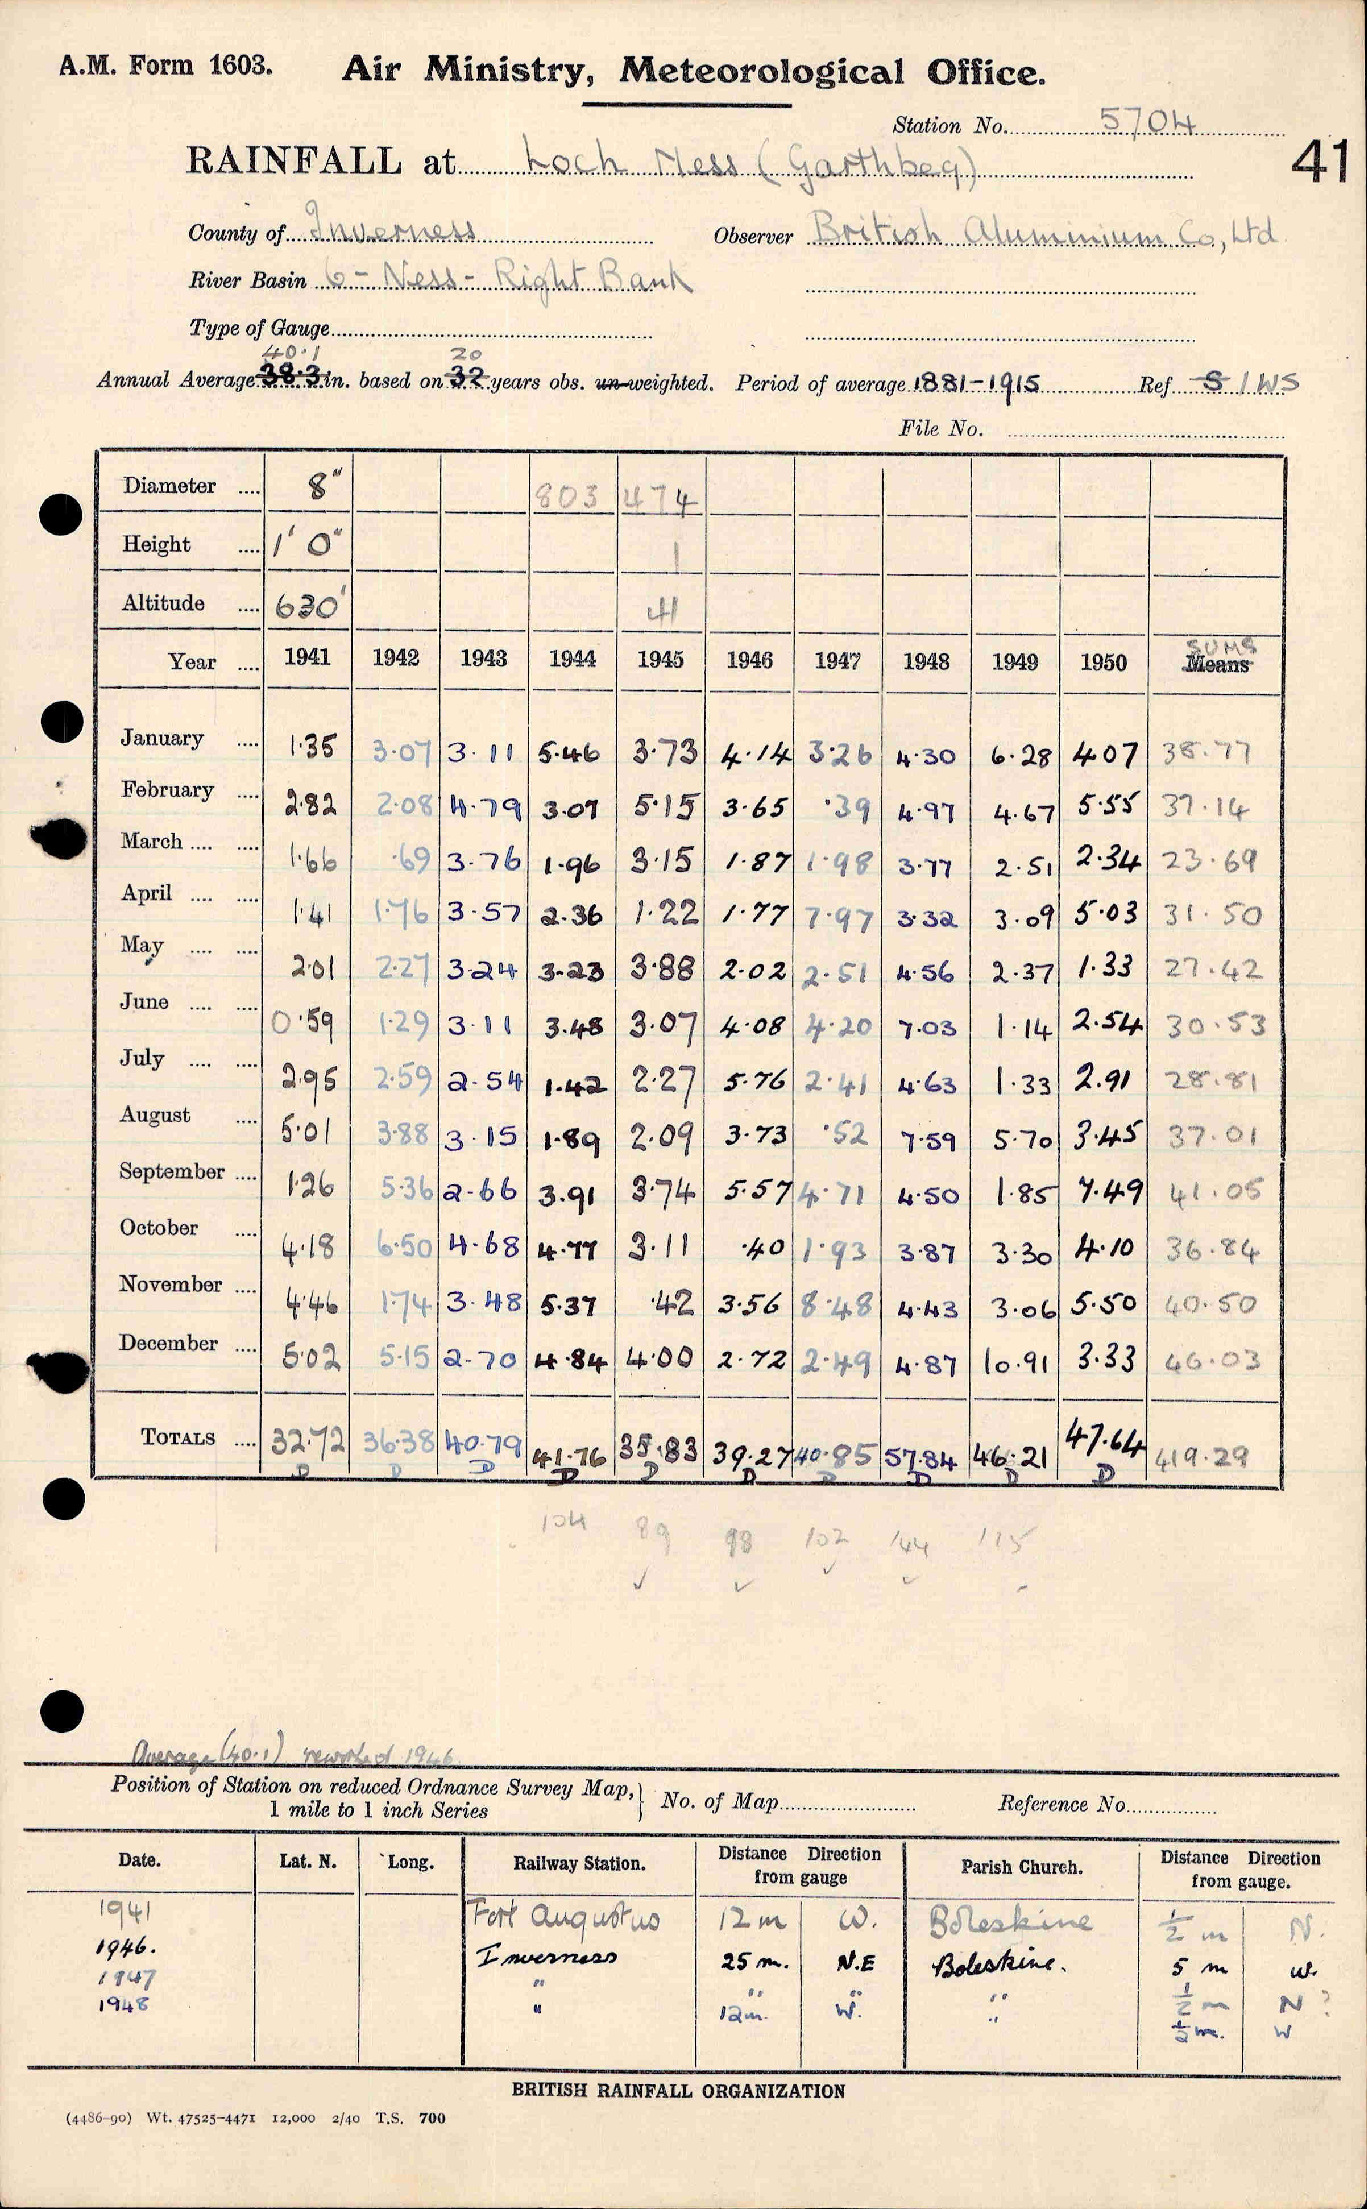 A.M. Form 1603. Air Ministry, Meteorological Office.
Station No. 5704
41
RAINFALL at Loch Ness (Garthbeg)
County of Inverness Observer British Aluminium Co, Ltd
River Basin 6 - Ness - Right Bank
Type of Gauge
40.1 20
Annual Average 38.3 in. based on 32 years obs. un-weighted. Period of average 1881-1915 Ref. S / WS
File No.
Diameter .... 8" 803 474
Height .... 1' 0" 1
Altitude .... 630' 41
SUMS
Year .... 1941 1942 1943 1944 1945 1946 1947 1948 1949 1950 Means
January .... 1.35 3.07 3.11 5.46 3.73 4.14 3.26 4.30 6.28 4.07 38.77
February .... 2.82 2.08 4.79 3.07 5.15 3.65 .39 4.97 4.67 5.55 37.14
March .... .... 1.66 .69 3.76 1.96 3.15 1.87 1.98 3.77 2.51 2.34 23.69
April .... .... 1.41 1.76 3.57 2.36 1.22 1.77 7.97 3.32 3.09 5.03 31.50
May .... .... 2.01 2.27 3.24 3.23 3.88 2.02 2.51 4.56 2.37 1.33 27.42
June .... .... 0.59 1.29 3.11 3.48 3.07 4.08 4.20 7.03 1.14 2.54 30.53
July .... .... 2.95 2.59 2.54 1.42 2.27 5.76 2.41 4.63 1.33 2.91 28.81
August .... 5.01 3.88 3.15 1.89 2.09 3.73 .52 7.59 5.70 3.45 37.01
September .... 1.26 5.36 2.66 3.91 3.74 5.57 4.71 4.50 1.85 7.49 41.05
October .... 4.18 6.50 4.68 4.77 3.11 .40 1.93 3.87 3.30 4.10 36.84
November .... 4.46 1.74 3.48 5.37 .42 3.56 8.48 4.43 3.06 5.50 40.50
December .... 5.02 5.15 2.70 4.84 4.00 2.72 2.49 4.87 10.91 3.33 46.03
TOTALS .... 32.72 36.38 40.79 41.76 35.83 39.27 40.85 57.84 46.21 47.64 419.29
D D D D D D D D D D
104 89 98 102 144 115
Average (40.1) reworked 1946.
Position of Station on reduced Ordnance Survey Map, } No. of Map Reference No.
1 mile to 1 inch Series
Date. Lat. N. Long. Railway Station. Distance Direction from gauge Parish Church. Distance Direction from gauge.
1941 Fort Augustus 12 m W. Boleskine 1/2 m N.
1946. Inverness 25 m. N.E Boleskine. 5 m W.
1947 " " " " 1/2 m N ?
1948 " 12m. W. " 1/2 m. W
BRITISH RAINFALL ORGANIZATION
(4486-90) Wt. 47525-4471 12,000 2/40 T.S. 700